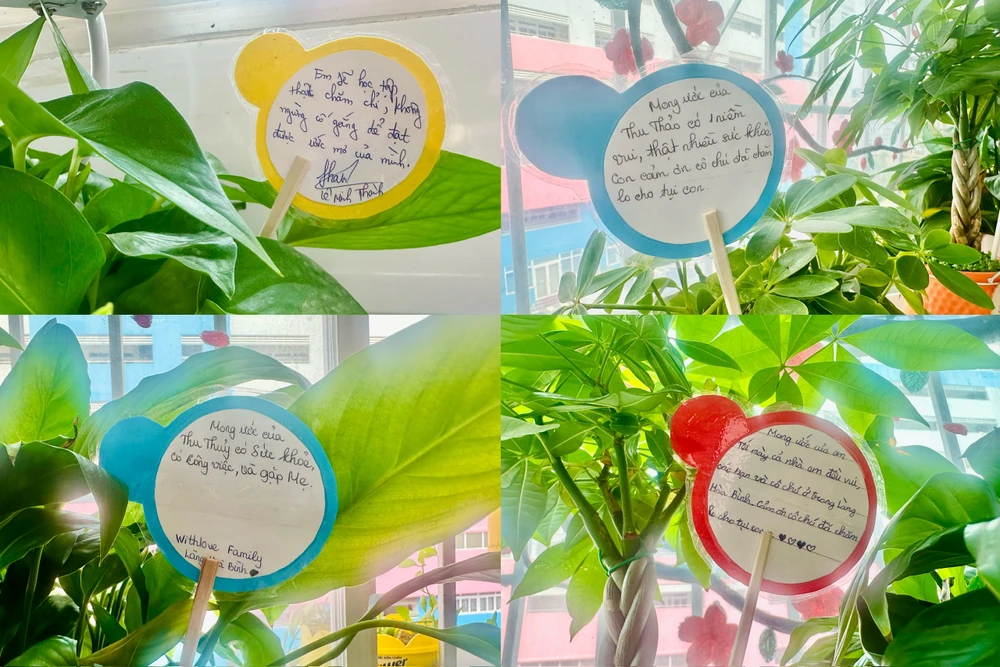 Em sẽ học tập
thật chăm chỉ, không
ngừng cố gắng để đạt
được ước mơ của mình.
Lê Minh Thành
Mong ước của
Thu Thảo có 1 niềm
vui, thật nhiều sức khỏe
Con cảm ơn cô chú đã chăm
lo cho tụi con.
Mong ước của
Thu Thủy có Sức khỏe,
có Công việc, và gặp Mẹ.
With love Family
Làng Hòa Bình
Mong ước của em
Tết này cả nhà em đều vui,
các bạn và cô chú ở trong Làng
Hòa Bình. Cảm ơn cô chú đã chăm
lo cho tụi con